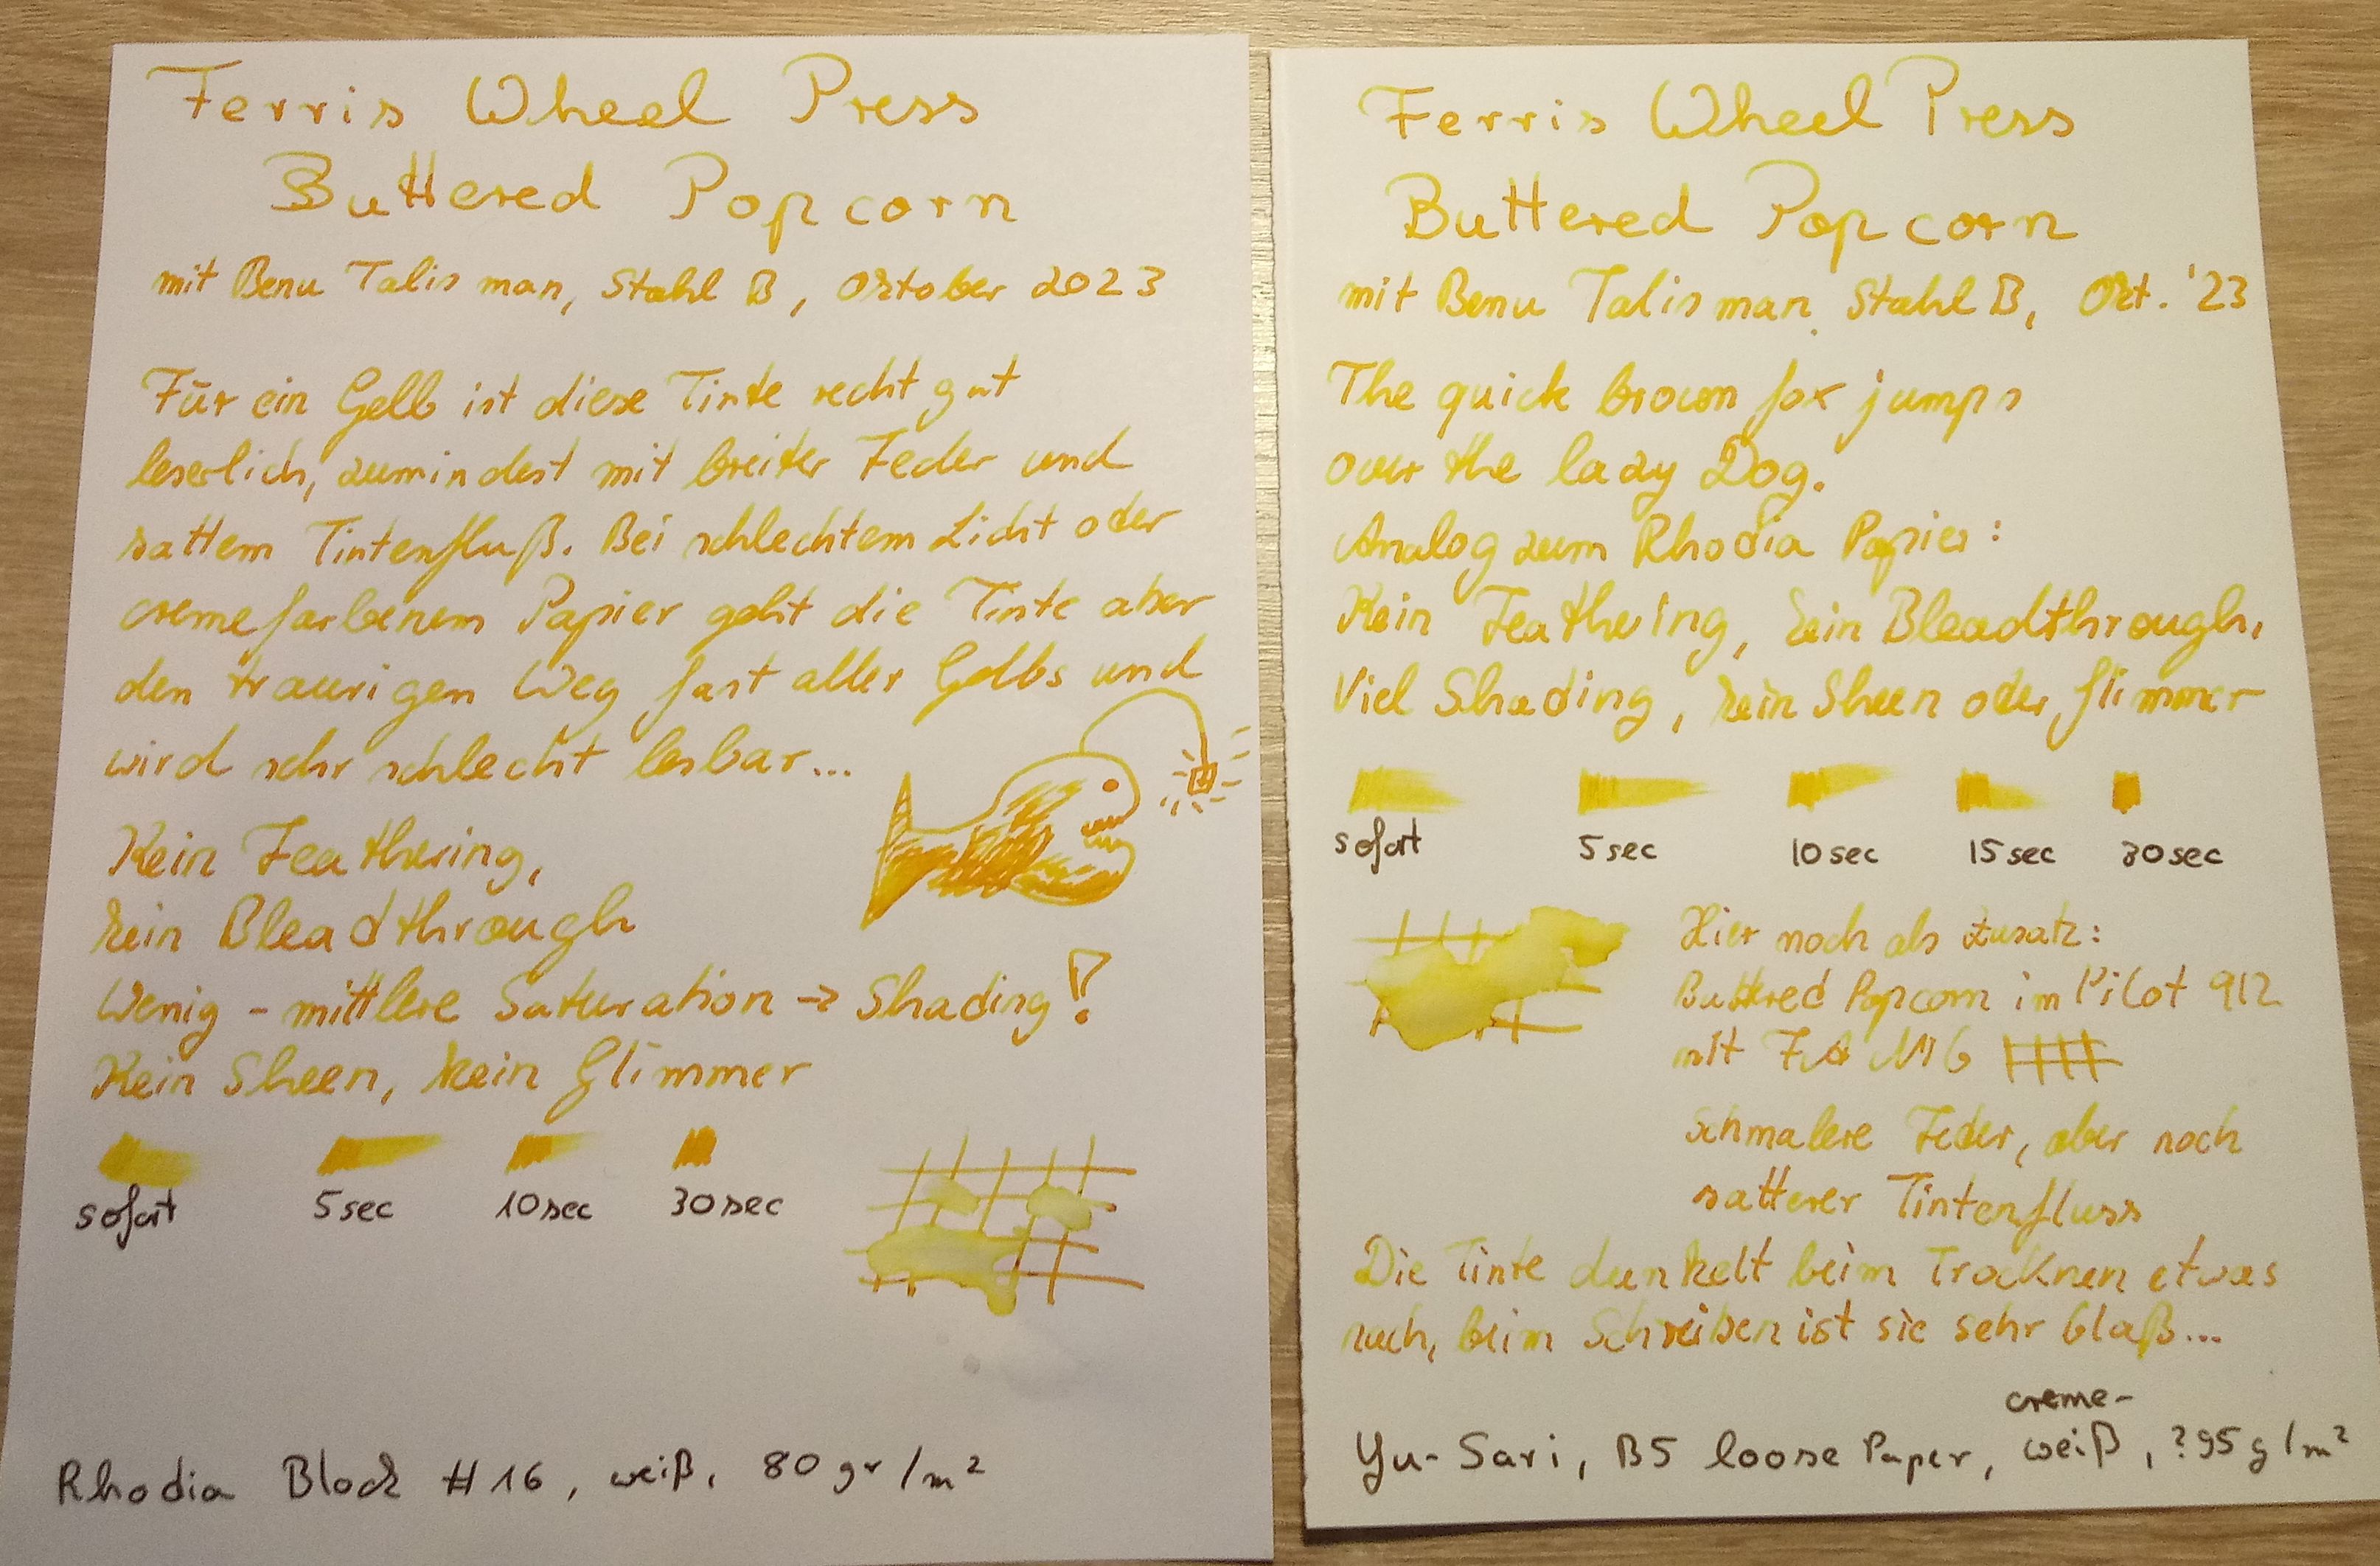 Ferris Wheel Press
Buttered Popcorn
mit Benu Talisman, Stahl B, Oktober 2023
Für ein Gelb ist diese Tinte recht gut
leserlich, zumindest mit breiter Feder und
sattem Tintenfluß. Bei schlechtem Licht oder
cremefarbenem Papier geht die Tinte aber
den traurigen Weg fast aller Gelbs und
wird sehr schlecht lesbar...
Kein Feathering,
kein Bleadthrough
Wenig - mittlere Saturation → Shading!
Kein Sheen, kein Glimmer
sofort 5sec 10sec 30sec
Rhodia Block #16, weiß, 80 gr/m²
Ferris Wheel Press
Buttered Popcorn
mit Benu Talisman, Stahl B, Okt. '23
The quick brown fox jumps
over the lazy Dog.
Analog zum Rhodia Papier:
Kein Feathering, kein Bleadthrough,
Viel Shading, kein Sheen oder Glimmer
sofort 5sec 10sec 15sec 30sec
Hier noch als Zusatz:
Buttered Popcorn im Pilot 912
mit FA
schmalere Feder, aber noch
satterer Tintenfluss
Die Tinte dunkelt beim Trocknen etwas
nach, beim Schreiben ist sie sehr blaß...
creme-
Yu-Sari, B5 loose Paper, weiß, ?95g/m²